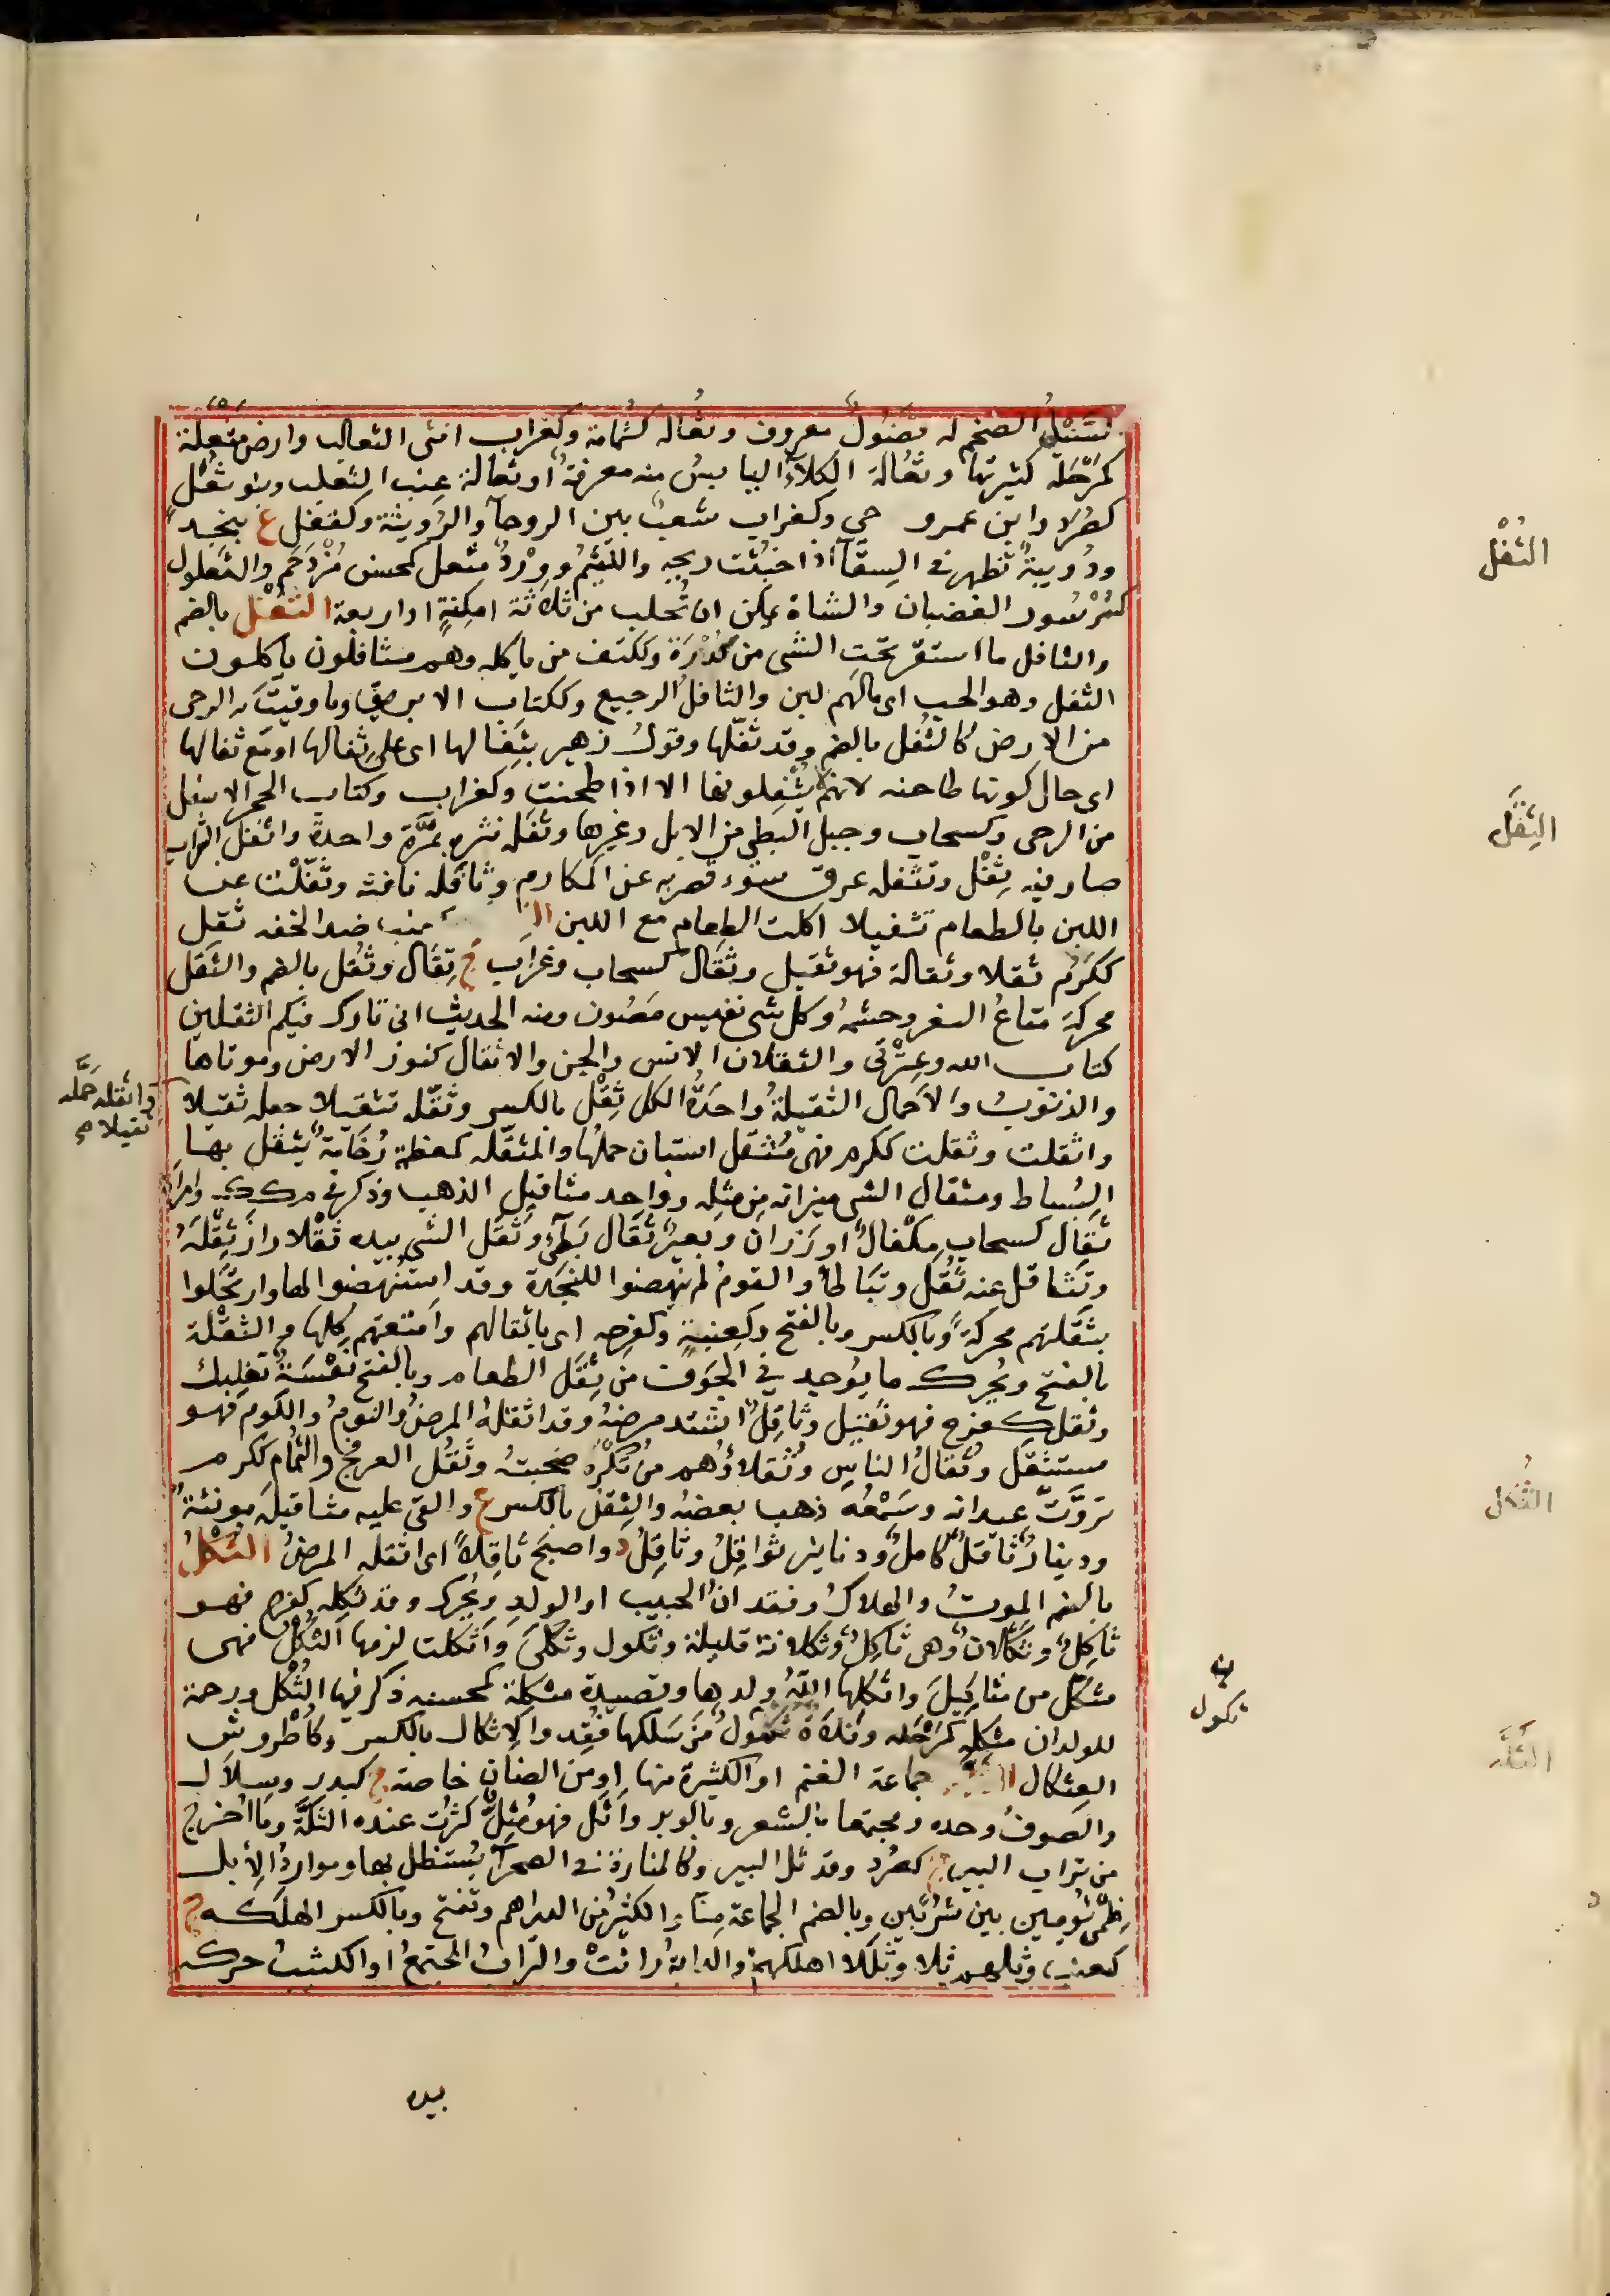 السيد الضخم له فضول معروف وثعالة كثمامة وكغراب انثى الثعالب وارض مثعلة
كمرحلة كثيرتها وثعالة الكلأ اليابس منه معرفة او ثعالة عنب الثعلب وبنو ثعل
كصرد ابن عمرو حي وكغراب شعب بين الروحآ والرويثة وكقفل ع بنجد
ودويبة تظهر في السقآ اذا خبثت ريحه واللئيم وورد مثعل كمحسن مزدحم والثعلول
كسرسور الغضبان والشاة يمكن ان تحلب من ثلاثة امكنة او اربعة الثفل بالضم
والثافل ما استقر تحت الشى من كدرة وككتف من ياكله وهم مثافلون ياكلون
الثفل وهو الحب اى مالهم لبن والثافل الرجيع وككتاب الابريق وما وقيت به الرحى
من الارض كالثفل بالضم وقد ثفلها وقول زهير بثفالها اى على ثفالها او مع ثفالها
اى حال كونها طاحنه لانهم لا يثفلونها الا اذا طحنت وكغراب وكتاب الحجر الاسفل
من الرحى وكسحاب وجبل البطى من الابل وغيرها وثفله نثره بمرة واحدة واثفل الشراب
صار فيه ثفل وتثفله عرق سوء قصر به عن المكارم وثافله نافثه وثفلت عن
اللبن بالطعام تثفيلا اكلت الطعام مع اللبن كعنب ضد الخفه ثقل
ككرم ثقلا وثقالة فهو ثقيل وثقال كسحاب وغراب ج ثقال وثقل بالضم والثقل
محركة متاع السفر وحشمه وكل شى نفيس مصون ومنه الحديث انى تارك فيكم الثقلين
كتاب الله وعترتى والثقلان الانس والجن والاثقال كنوز الارض وموتاها
والذنوب والاحمال الثقيلة واحدة الكل ثقل بالكسر وثقله تثقيلا جعله ثقيلا
واثقله حمله
ثقيلا صح
واثقلت وثقلت ككرم فهى مثقل استبان حملها والمثقله كمعظمة رخامة يثقل بها
البساط ومثقال الشى ميزانه من مثله وواحد مثاقيل الذهب وذكر فى م ك ك وامراة
ثقال كسحاب مكفال او رزان وبعير ثقال بطى وثقل الشى بيده ثقلا راز ثقله
وتثاقل عنه ثقل وتباطا والقوم لم ينهضوا للنجدة وقد استنهضوا لها وارتحلوا
بثقلتهم محركة وبالكسر وبالفتح وكعنبة وكفرحه اى باثقالهم وامتعتهم كلها والثقلة
بالفتح ويحرك ما يوجد في الجوف من ثقل الطعام وبالفتح نعسة تغلبك
وثقل كفرح فهو ثقيل وثاقل اشتد مرضه وقد اثقله المرض والنوم واللوم فهو
مستثقل وثقال الناس وثقلاؤهم من تكره صحبته وثقل العرفج والثمام ككرم
تروت عيدانه وسمعه ذهب بعضه والثقل بالكسر ع والقى عليه مثاقيله مونئته
ودينار ثاقل كامل ودنانير ثواقل وثاقل د واصبح ثاقلا اى اثقله المرض الثكل
بالضم الموت والهلاك وفقدان الحبيب او الولد ويحرك وقد ثكله كفرح فهو
ثاكل وثكلان وهى ثاكل وثكلانة قليلة وثكول وثكلى واثكلت لزمها الثكل فهى
مثكل من مثاكيل واثكلها الله ولدها وقصيدة مثكلة كمحسنه ذكر فيها الثكل ورمحه
للولدان مثكلة كمرحله وفلاة ثكول من سلكها فقد والاثكال بالكسر وكاطروش
العثكال جماعة الغنم او الكثيرة منها او من الضان خاصة ج كبدر وسلال
والصوف وحده ومجتمعا بالشعر وبالوبر واثل فهو مثل كثرت عنده الثلة وما اخرج
من تراب البير ج كصرد وقد ثل البير وكالمنارة فى الصحرآ يستظل بها وموارد الابل
ظمئ يومين بين شربين وبالضم الجماعة منا والكثير من الدراهم وتفتح وبالكسر الهلكه ج
كعنب وثلهم ثلا وثللا اهلكهم والدابة راثت والتراب المجتمع او الكثيب حركه
بيده
الثفل
الثقل
الثكل
ثكول
الثلة